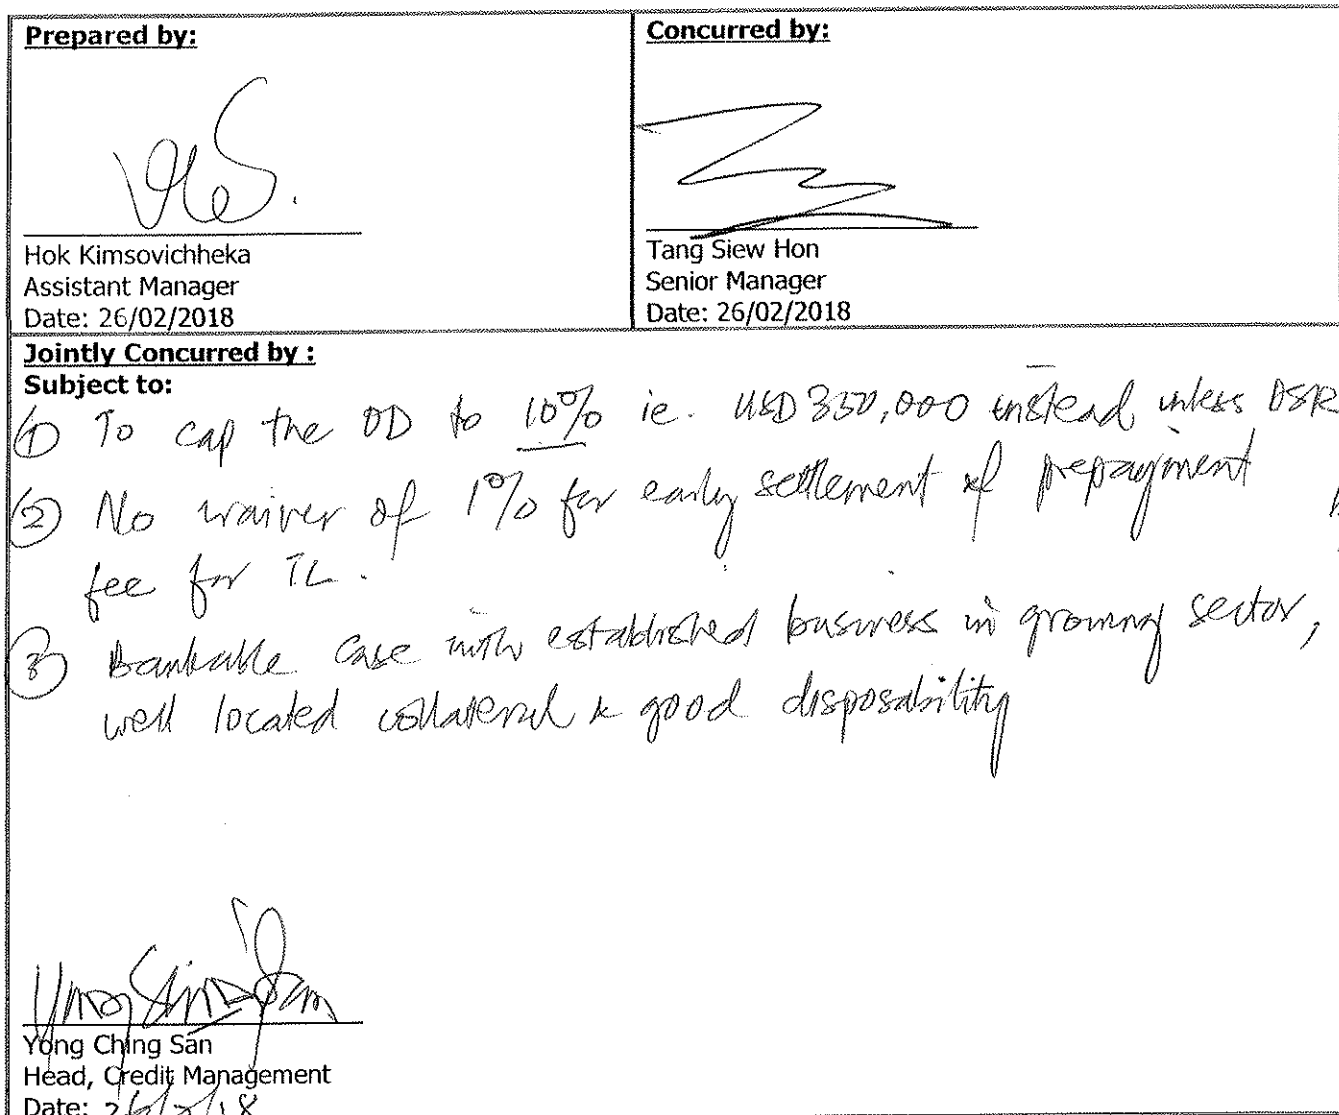 Prepared by:
Concurred by:
Hok Kimsovichheka
Assistant Manager
Date: 26/02/2018
Tang Siew Hon
Senior Manager
Date: 26/02/2018
Jointly Concurred by :
Subject to:
(1) To cap the OD to 10% ie. USD 350,000 instead unless DSR
(2) No waiver of 1% for early settlement of prepayment
fee for TL.
(3) Bankable case with established business in growing sector,
well located collateral & good disposability
Yong Ching San
Head, Credit Management
Date: 26/2/18